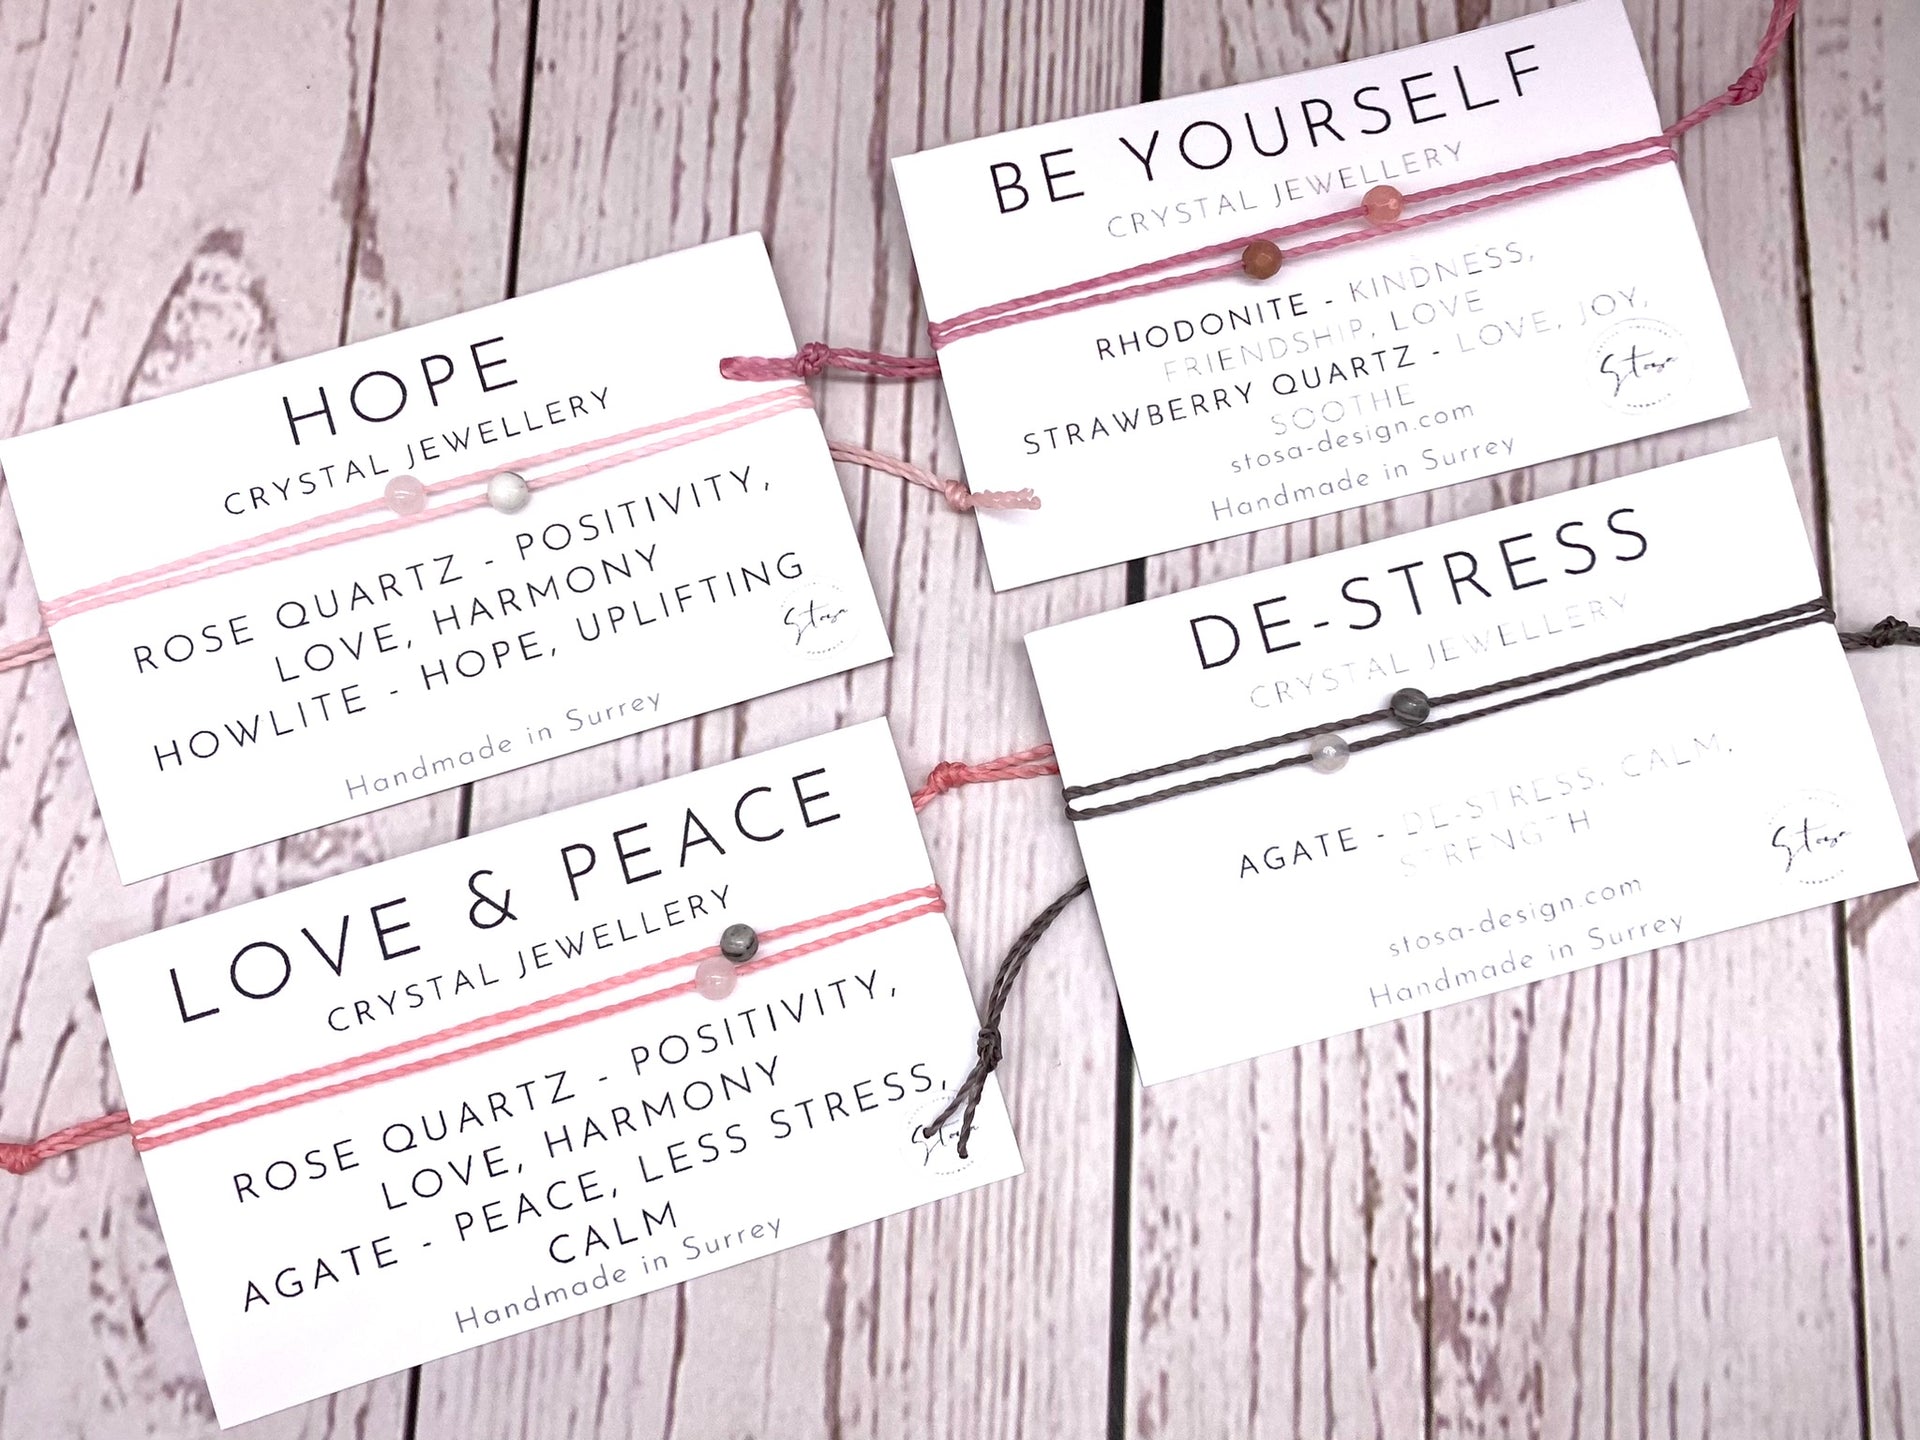 HOPE
CRYSTAL JEWELLERY
ROSE QUARTZ - POSITIVITY,
LOVE, HARMONY
HOWLITE - HOPE, UPLIFTING
Stosa
Handmade in Surrey
BE YOURSELF
CRYSTAL JEWELLERY
RHODONITE - KINDNESS,
FRIENDSHIP, LOVE
STRAWBERRY QUARTZ - LOVE, JOY,
SOOTHE
Stosa
stosa-design.com
Handmade in Surrey
LOVE & PEACE
CRYSTAL JEWELLERY
ROSE QUARTZ - POSITIVITY,
LOVE, HARMONY
AGATE - PEACE, LESS STRESS,
CALM
Stosa
Handmade in Surrey
DE-STRESS
CRYSTAL JEWELLERY
AGATE - DE-STRESS, CALM,
STRENGTH
Stosa
stosa-design.com
Handmade in Surrey